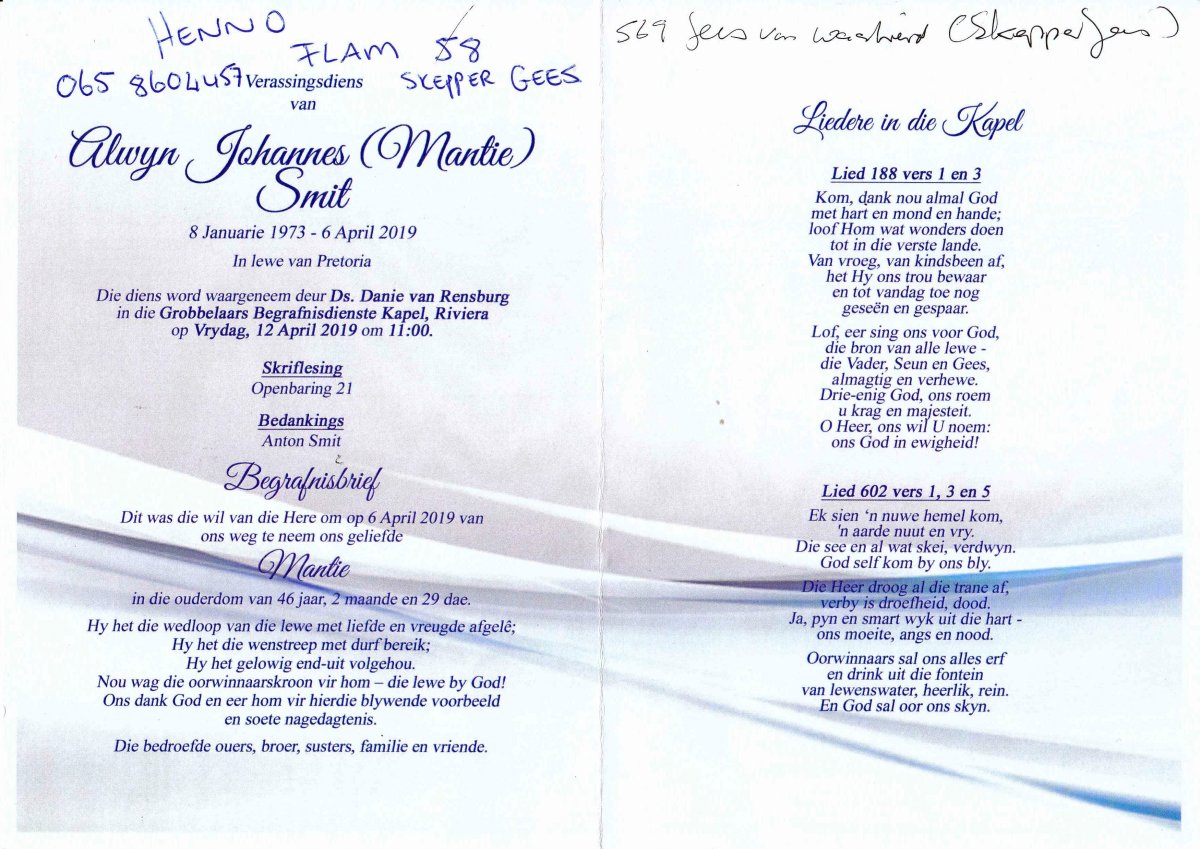 HENNO
FLAM 58
065 8604457
SKEPPER GEES
Verassingsdiens
van
Alwyn Johannes (Mantie)
Smit
8 Januarie 1973 - 6 April 2019
In lewe van Pretoria
Die diens word waargeneem deur Ds. Danie van Rensburg
in die Grobbelaars Begrafnisdienste Kapel, Riviera
op Vrydag, 12 April 2019 om 11:00.
Skriflesing
Openbaring 21
Bedankings
Anton Smit
Begrafnisbrief
Dit was die wil van die Here om op 6 April 2019 van
ons weg te neem ons geliefde
Mantie
in die ouderdom van 46 jaar, 2 maande en 29 dae.
Hy het die wedloop van die lewe met liefde en vreugde afgelê;
Hy het die wenstreep met durf bereik;
Hy het gelowig end-uit volgehou.
Nou wag die oorwinnaarskroon vir hom – die lewe by God!
Ons dank God en eer hom vir hierdie blywende voorbeeld
en soete nagedagtenis.
Die bedroefde ouers, broer, susters, familie en vriende.
569 van (Skepper
Liedere in die Kapel
Lied 188 vers 1 en 3
Kom, dank nou almal God
met hart en mond en hande;
loof Hom wat wonders doen
tot in die verste lande.
Van vroeg, van kindsbeen af,
het Hy ons trou bewaar
en tot vandag toe nog
geseën en gespaar.
Lof, eer sing ons voor God,
die bron van alle lewe -
die Vader, Seun en Gees,
almagtig en verhewe.
Drie-enig God, ons roem
u krag en majesteit.
O Heer, ons wil U noem:
ons God in ewigheid!
Lied 602 vers 1, 3 en 5
Ek sien ‘n nuwe hemel kom,
'n aarde nuut en vry.
Die see en al wat skei, verdwyn.
God self kom by ons bly.
Die Heer droog al die trane af,
verby is droefheid, dood.
Ja, pyn en smart wyk uit die hart -
ons moeite, angs en nood.
Oorwinnaars sal ons alles erf
en drink uit die fontein
van lewenswater, heerlik, rein.
En God sal oor ons skyn.